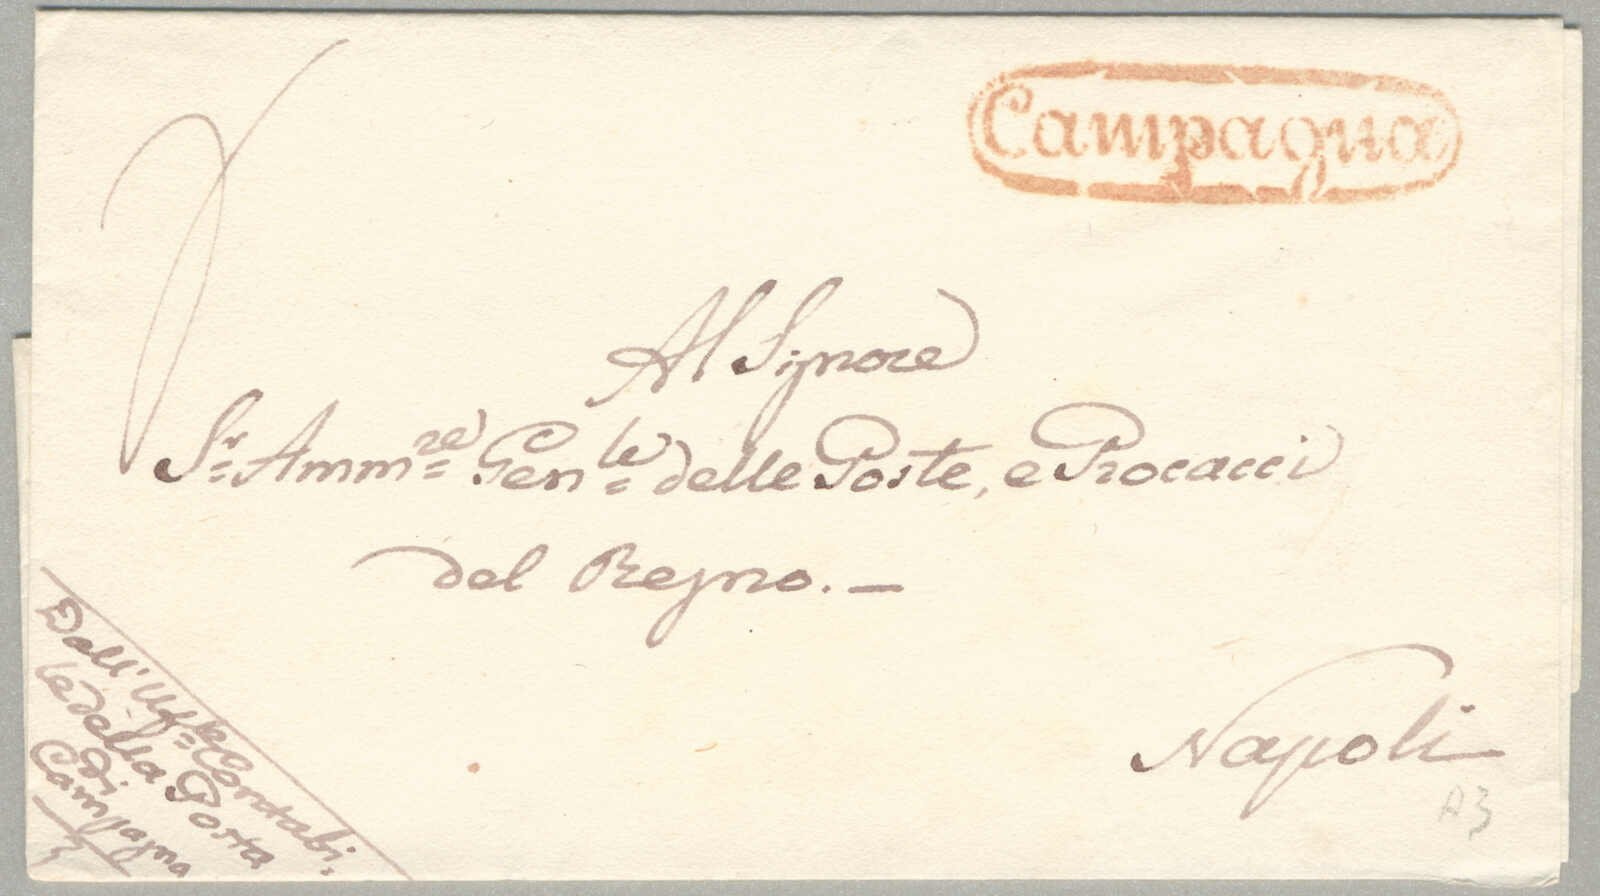 Campagna
Al Signore
Sr. Ammre Genle delle Poste, e Procacci
del Regno. —
Napoli
Dall' Uffle Contabi-
le della Posta
di
Campagna
A3